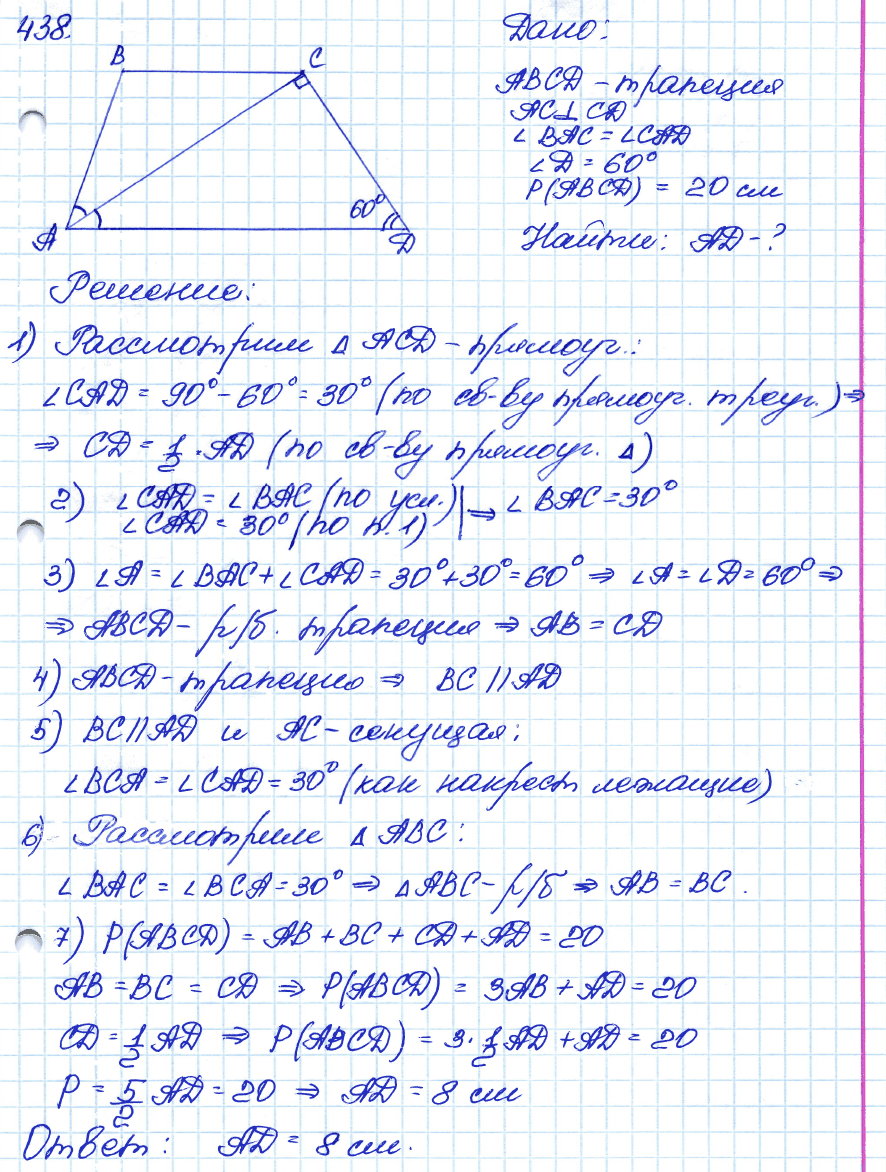 438.
B
C
A
60°
D
Дано:
ABCD – трапеция
AC⊥CD
∠BAC = ∠CAD
∠D = 60°
P(ABCD) = 20 см
Найти: AD - ?
Решение:
1) Рассмотрим △ ACD – прямоуг.:
∠CAD = 90° - 60° = 30° (по св-ву прямоуг. треуг.) ⇒
⇒ CD = 1/2 · AD (по св-ву прямоуг. △)
2) ∠CAD = ∠BAC (по усл.) | ⇒ ∠BAC = 30°
∠CAD = 30° (по п.1)
3) ∠A = ∠BAC + ∠CAD = 30° + 30° = 60° ⇒ ∠A = ∠D = 60° ⇒
⇒ ABCD – р/б. трапеция ⇒ AB = CD
4) ABCD – трапеция ⇒ BC // AD
5) BC // AD и AC – секущая:
∠BCA = ∠CAD = 30° (как накрест лежащие)
6) Рассмотрим △ ABC:
∠BAC = ∠BCA = 30° ⇒ △ABC – р/б ⇒ AB = BC.
7) P(ABCD) = AB + BC + CD + AD = 20
AB = BC = CD ⇒ P(ABCD) = 3AB + AD = 20
CD = 1/2 AD ⇒ P(ABCD) = 3 · 1/2 AD + AD = 20
P = 5/2 AD = 20 ⇒ AD = 8 см
Ответ: AD = 8 см.